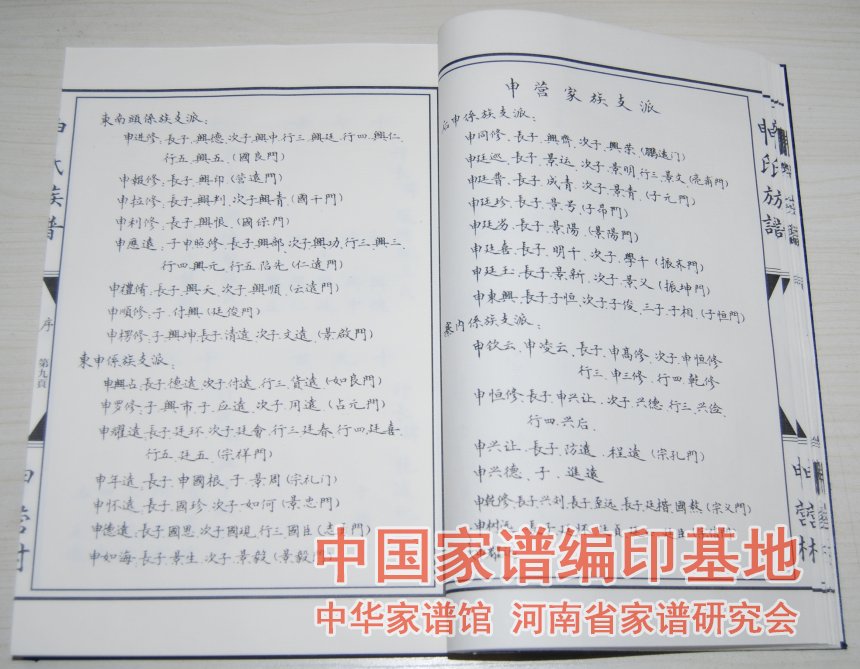 申营家族支派
后申係族支派：
申同修.長子.興齊.次子.興荣.(鵬遠门)
申廷巡.長子.景运.次子.景明.行三.景文.
申廷晋.長子.成青.次子.景青.(子元門)
申廷珍.長子.景号.(子昂門)
申廷芳.長子.景陽.(景陽門)
申廷喜.長子.明千.次子.學千(振东門)
申廷玉.長子.景新.次子.景义(振坤門)
申東興.長子子恒.次子子俊.三子.子相(子恒門)
寨内係族支派：
申钦云.申凌云.長子.申高修.次子.申恒修
行三.申三修.行四.乾修
申恒修.長子.申兴让.次子.兴德.行三.兴俭
行四.兴后.
申兴让.長子.防遠.程遠.(宗孔門)
申兴德.子.進遠
申乾修.長子.兴刘.長子.至远.長子.廷揩.國 (宗义門)
東南頭係族支派：
申进修.長子.興德.次子.興申.行三.興廷.行四.興仁.
行五.興五.(國良門)
申報修.長子.興印(营遠門)
申拉修.長子.興判.次子興青(國干門)
申利修.子.興恨.(國保門)
申應遠.子申照修.長子.興部.次子.興功.行三.興三.
行四.興元.行五.陷先(仁遠門)
申禮脩.長子.興天.次子.興順(云遠門)
申順修.子.付興(廷俊門)
申楞修.子.興坤.長子清遠.次子.文遠.(景啟門)
東申係族支派：
申興占.長子.德遠.次子.付遠.行三.貨遠(如良門)
申罗修.子.興市.子.应遠.次子.用遠.(占元門)
申耀遠.長子.廷环.次子.廷會.行三.廷春.行四.廷喜.
行五.廷五.(宗祥門)
申年遠.長子申國根.子.景周(宗礼门)
申怀遠.長子.國珍.次子.如何(景忠門)
申德遠.長子.國思.次子國現.行三國臣
申如海.長子.景生.次子.景毅(景毅門
序
第九頁
申氏族譜
中国家谱编印基地
中华家谱馆 河南省家谱研究会